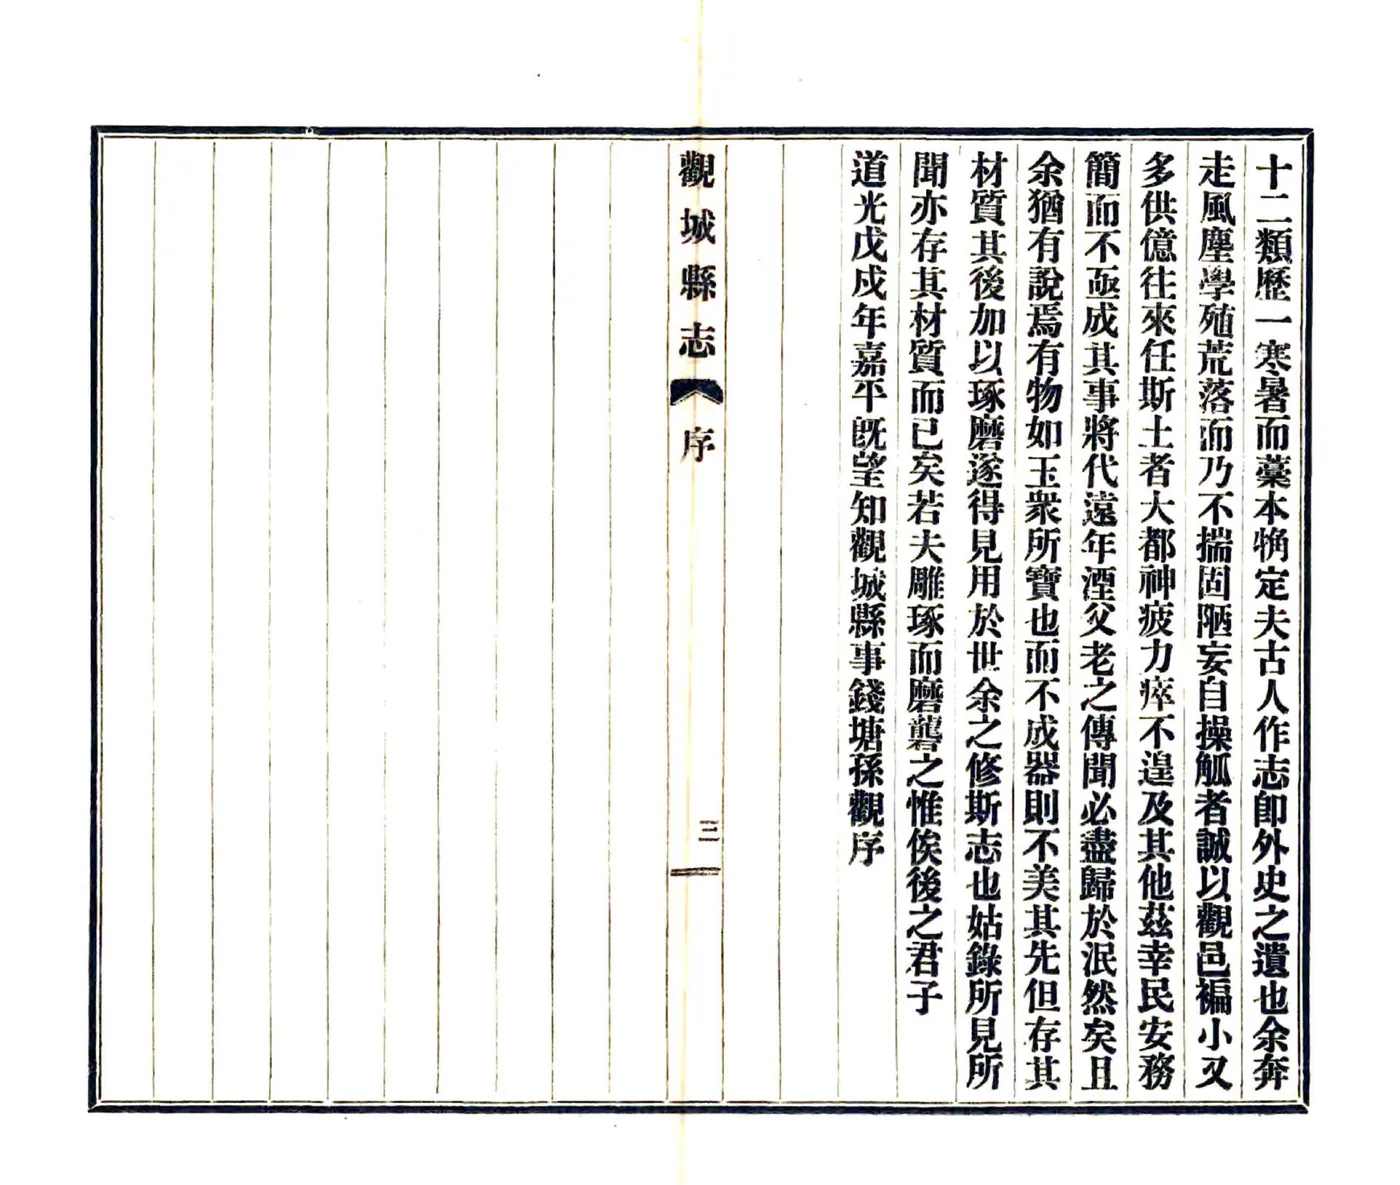 十二類歷一寒暑而藁本觕定夫古人作志卽外史之遺也余奔
走風塵學殖荒落而乃不揣固陋妄自操觚者誠以觀邑褊小又
多供億往來任斯土者大都神疲力瘁不遑及其他茲幸民安務
簡而不亟成其事將代遠年湮父老之傳聞必盡歸於泯然矣且
余猶有說焉有物如玉衆所寶也而不成器則不美其先但存其
材質其後加以琢磨遂得見用於世余之修斯志也姑錄所見所
聞亦存其材質而已矣若夫雕琢而磨礱之惟俟後之君子
道光戊戌年嘉平旣望知觀城縣事錢塘孫觀序
觀城縣志
序
三